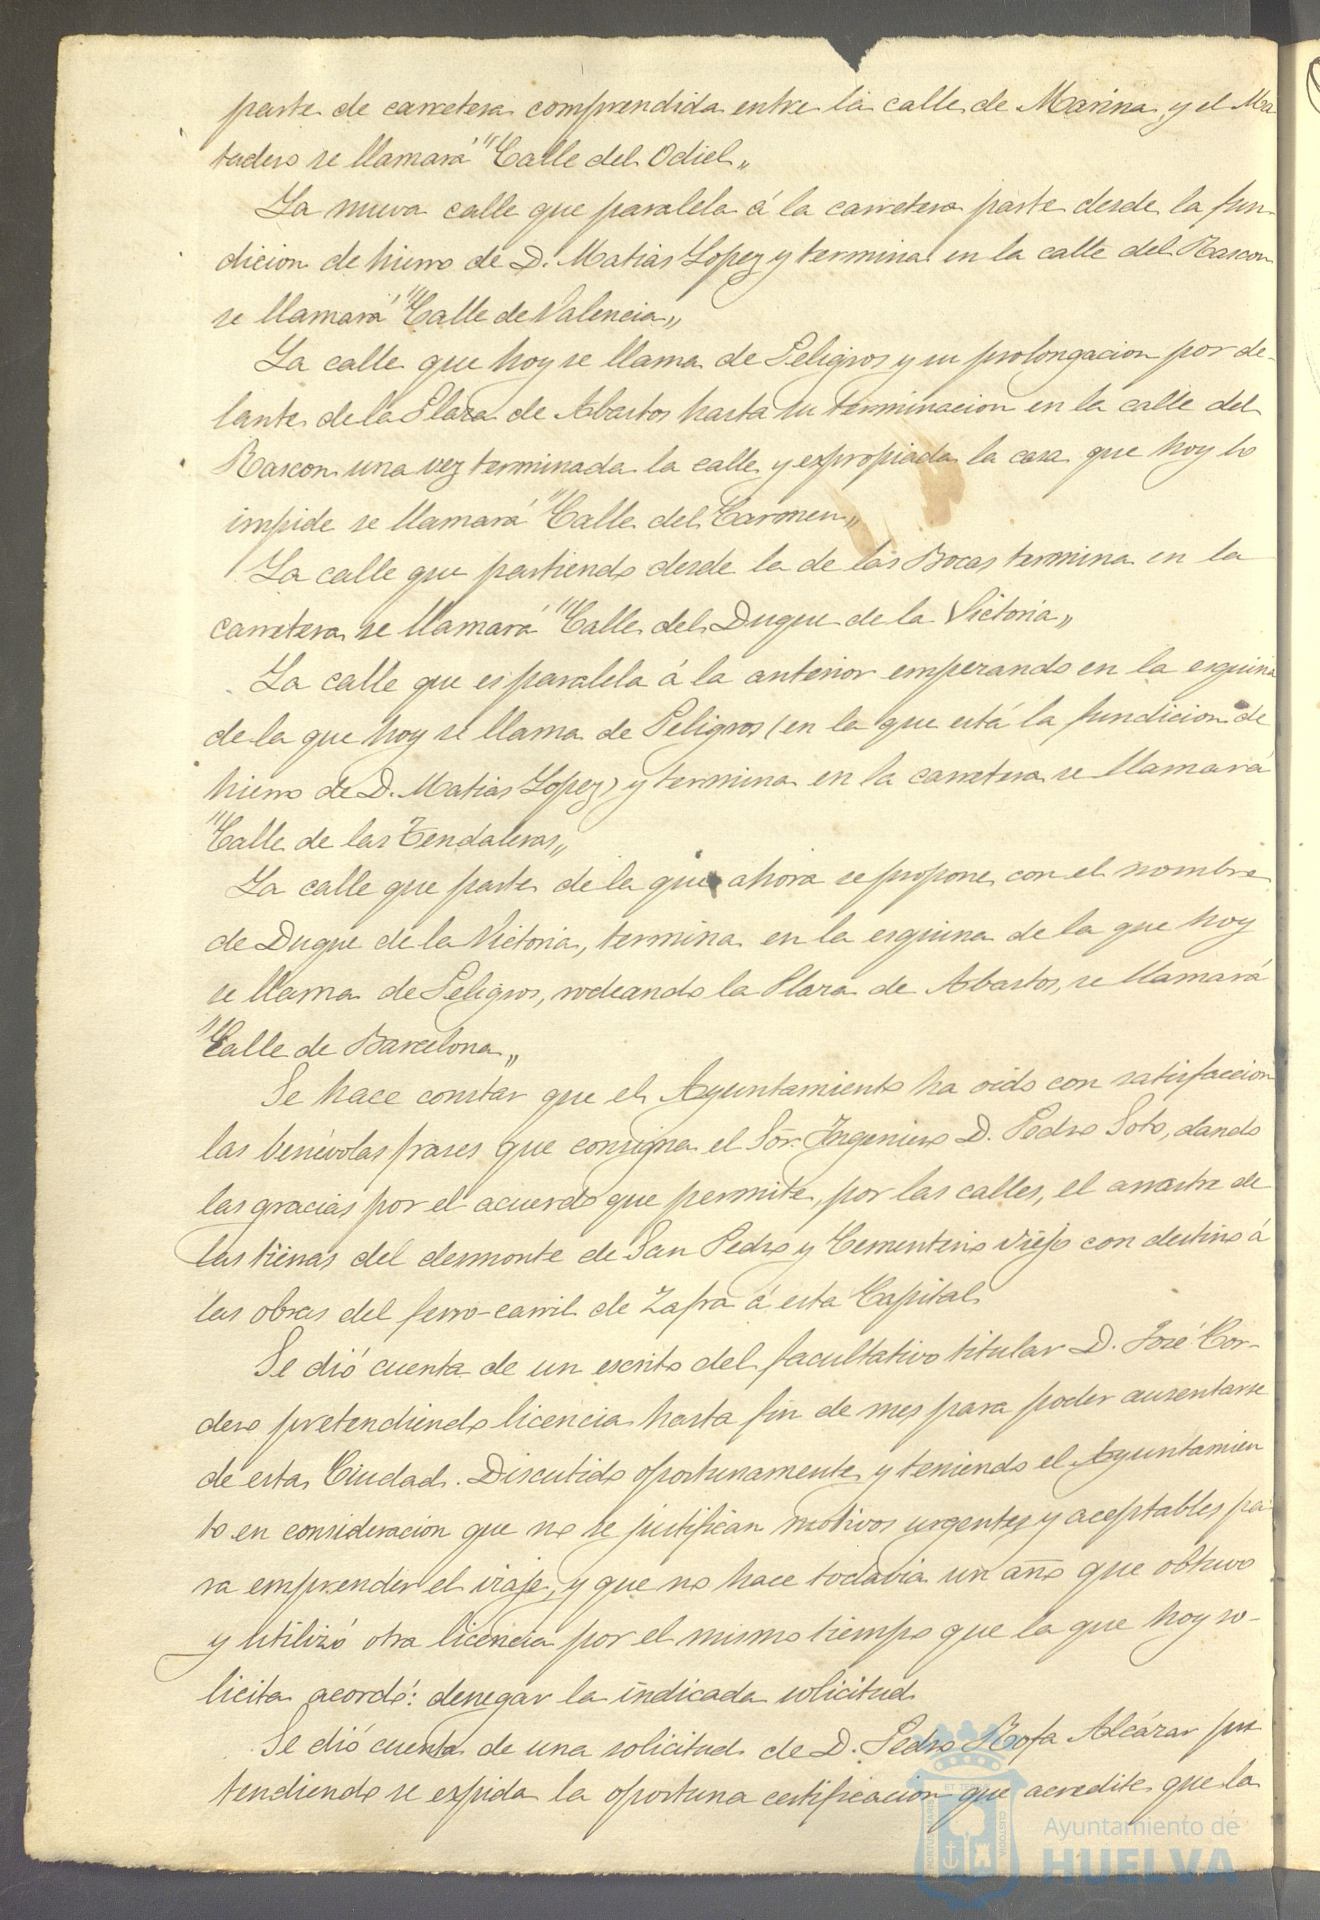 parte de carretera comprendida entre la calle de Marina, y el Ma
tadero se llamará "Calle del Odiel„
La nueva calle que paralela á la carretera parte desde la fun
dicion de hierro de D. Matias Lopez y termina en la calle del Rascon
se llamará "Calle de Valencia„
La calle que hoy se llama de Peligros y su prolongacion por de-
lante de la Plaza de Abastos hasta su terminacion en la calle del
Rascon una vez terminada la calle y expropiada la casa que hoy lo
impide se llamará "Calle del Carmen„
La calle que partiendo desde la de las Bocas termina en la
carretera se llamará "Calle del Duque de la Victoria„
La calle que es paralela á la anterior empezando en la esquina
de la que hoy se llama de Peligros (en la que está la fundicion de
hierro de D. Matias Lopez) y termina en la carretera se llamará
"Calle de las Tendaleras„
La calle que parte de la que ahora se propone con el nombre
de Duque de la Victoria, termina en la esquina de la que hoy
se llama de Peligros, rodeando la Plaza de Abastos, se llamará
"Calle de Barcelona„
Se hace constar que el Ayuntamiento ha oido con satisfaccion
las benévolas frases que consigna el Sor. Ingeniero D. Pedro Soto, dando
las gracias por el acuerdo que permite, por las calles, el arrastre de
las tierras del desmonte de San Pedro y Cementerio viejo con destino á
las obras del ferro-carril de Zafra á esta Capital.
Se dió cuenta de un escrito del facultativo titular D. José Cor-
dero pretendiendo licencia hasta fin de mes para poder ausentarse
de esta Ciudad. Discutido oportunamente y teniendo el Ayuntamien
to en consideracion que no se justifican motivos urgentes y aceptables pa-
ra emprender el viaje, y que no hace todavia un año que obtuvo
y utilizó otra licencia por el mismo tiempo que la que hoy so-
licita acordó: denegar la indicada solicitud
Se dió cuenta de una solicitud de D. Pedro Rofa Alcázar pre
tendiendo se expida la oportuna certificacion que acredite que la
Ayuntamiento de
HUELVA